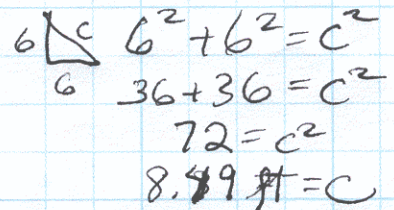 6 c 6² + 6² = c²
6 36 + 36 = c²
72 = c²
8.49 ft = c